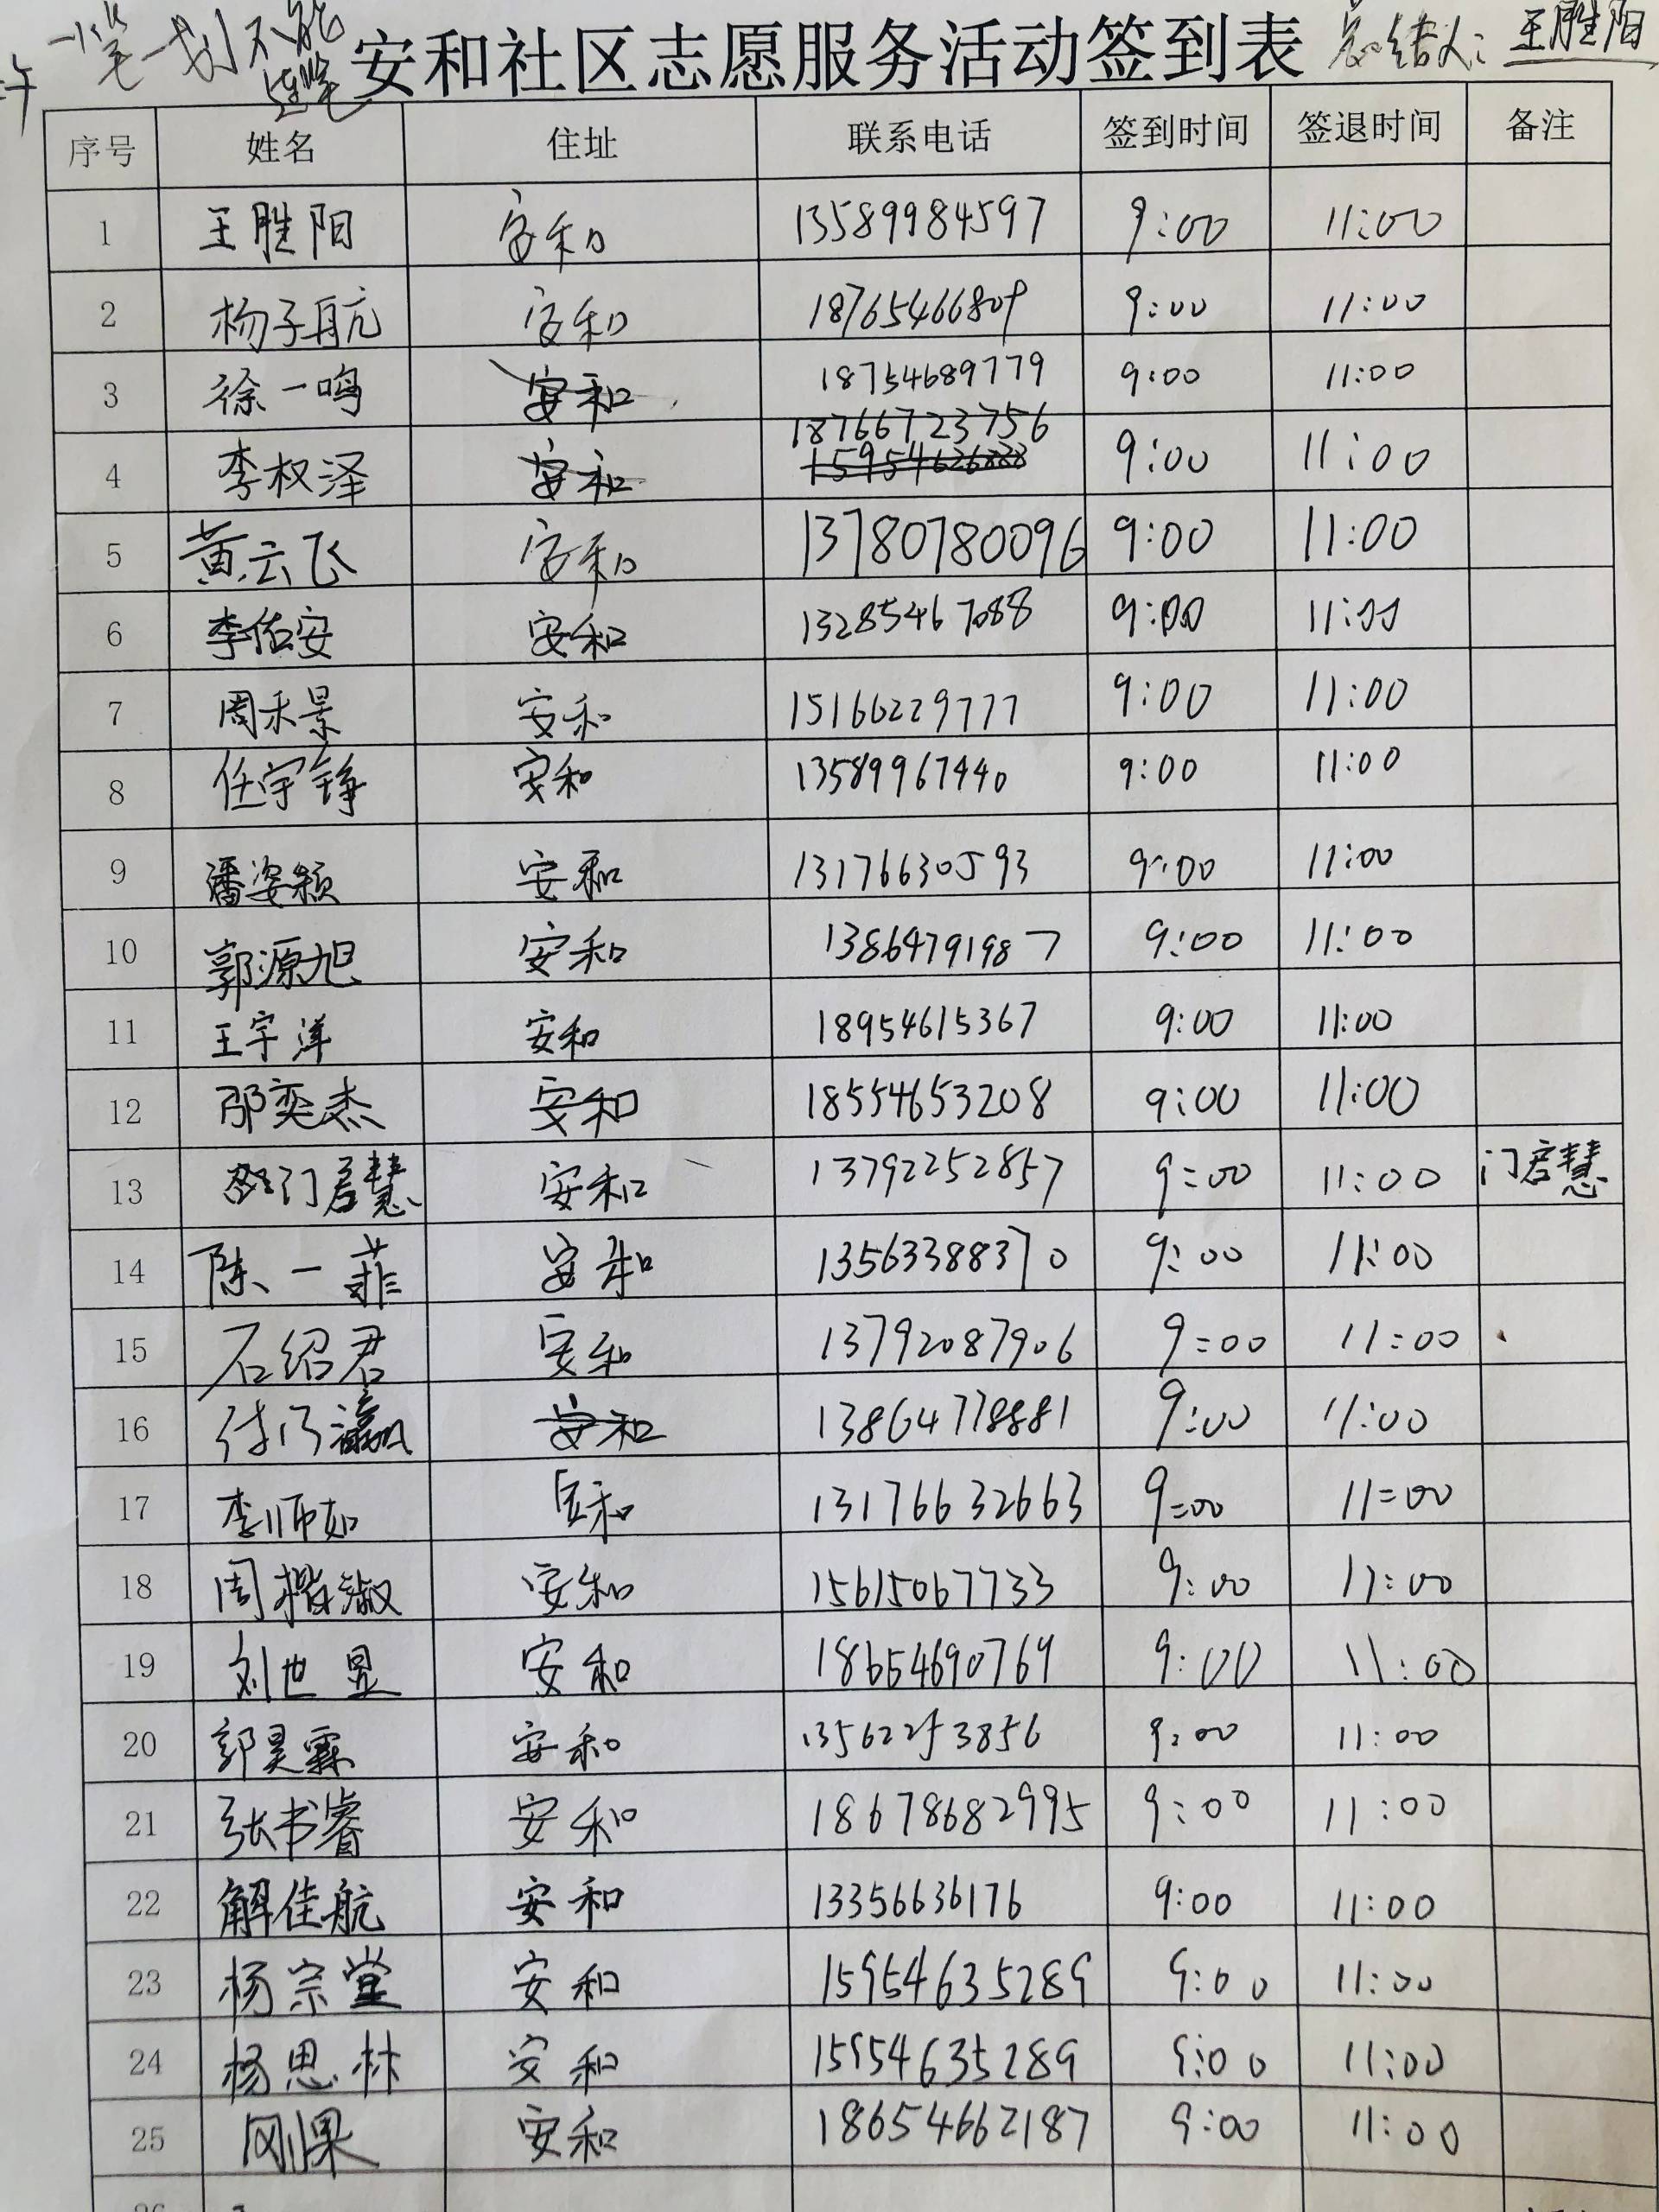 一笔一划不能
连笔
安和社区志愿服务活动签到表
总结人：王胜阳
午
序号 姓名 住址 联系电话 签到时间 签退时间 备注
1 王胜阳 安和 13589984597 9:00 11:00
2 杨子航 安和 18765466809 9:00 11:00
3 徐一鸣 安和 18754689779 9:00 11:00
4 李权泽 安和 18766723756 9:00 11:00
5 黄云飞 安和 13780780096 9:00 11:00
6 李佑安 安和 13285467088 9:00 11:00
7 周禾景 安和 15166229777 9:00 11:00
8 任宇铮 安和 13589967440 9:00 11:00
9 潘姿颖 安和 13176630593 9:00 11:00
10 郭源旭 安和 13864791987 9:00 11:00
11 王宇洋 安和 18954615367 9:00 11:00
12 邵奕杰 安和 18554653208 9:00 11:00
13 门启慧 安和 13792252857 9:00 11:00 门启慧
14 陈一菲 安和 13563388370 9:00 11:00
15 石绍君 安和 13792087906 9:00 11:00
16 付乃瀛 安和 13864778881 9:00 11:00
17 李师如 安和 13176632663 9:00 11:00
18 周楷淑 安和 15615067733 9:00 11:00
19 刘世昱 安和 18654690769 9:00 11:00
20 郭昊霖 安和 13562253856 9:00 11:00
21 张书睿 安和 18678682995 9:00 11:00
22 解佳航 安和 13356636176 9:00 11:00
23 杨宗堂 安和 15954635289 9:00 11:00
24 杨思林 安和 15954635289 9:00 11:00
25 刚果 安和 18654662187 9:00 11:00